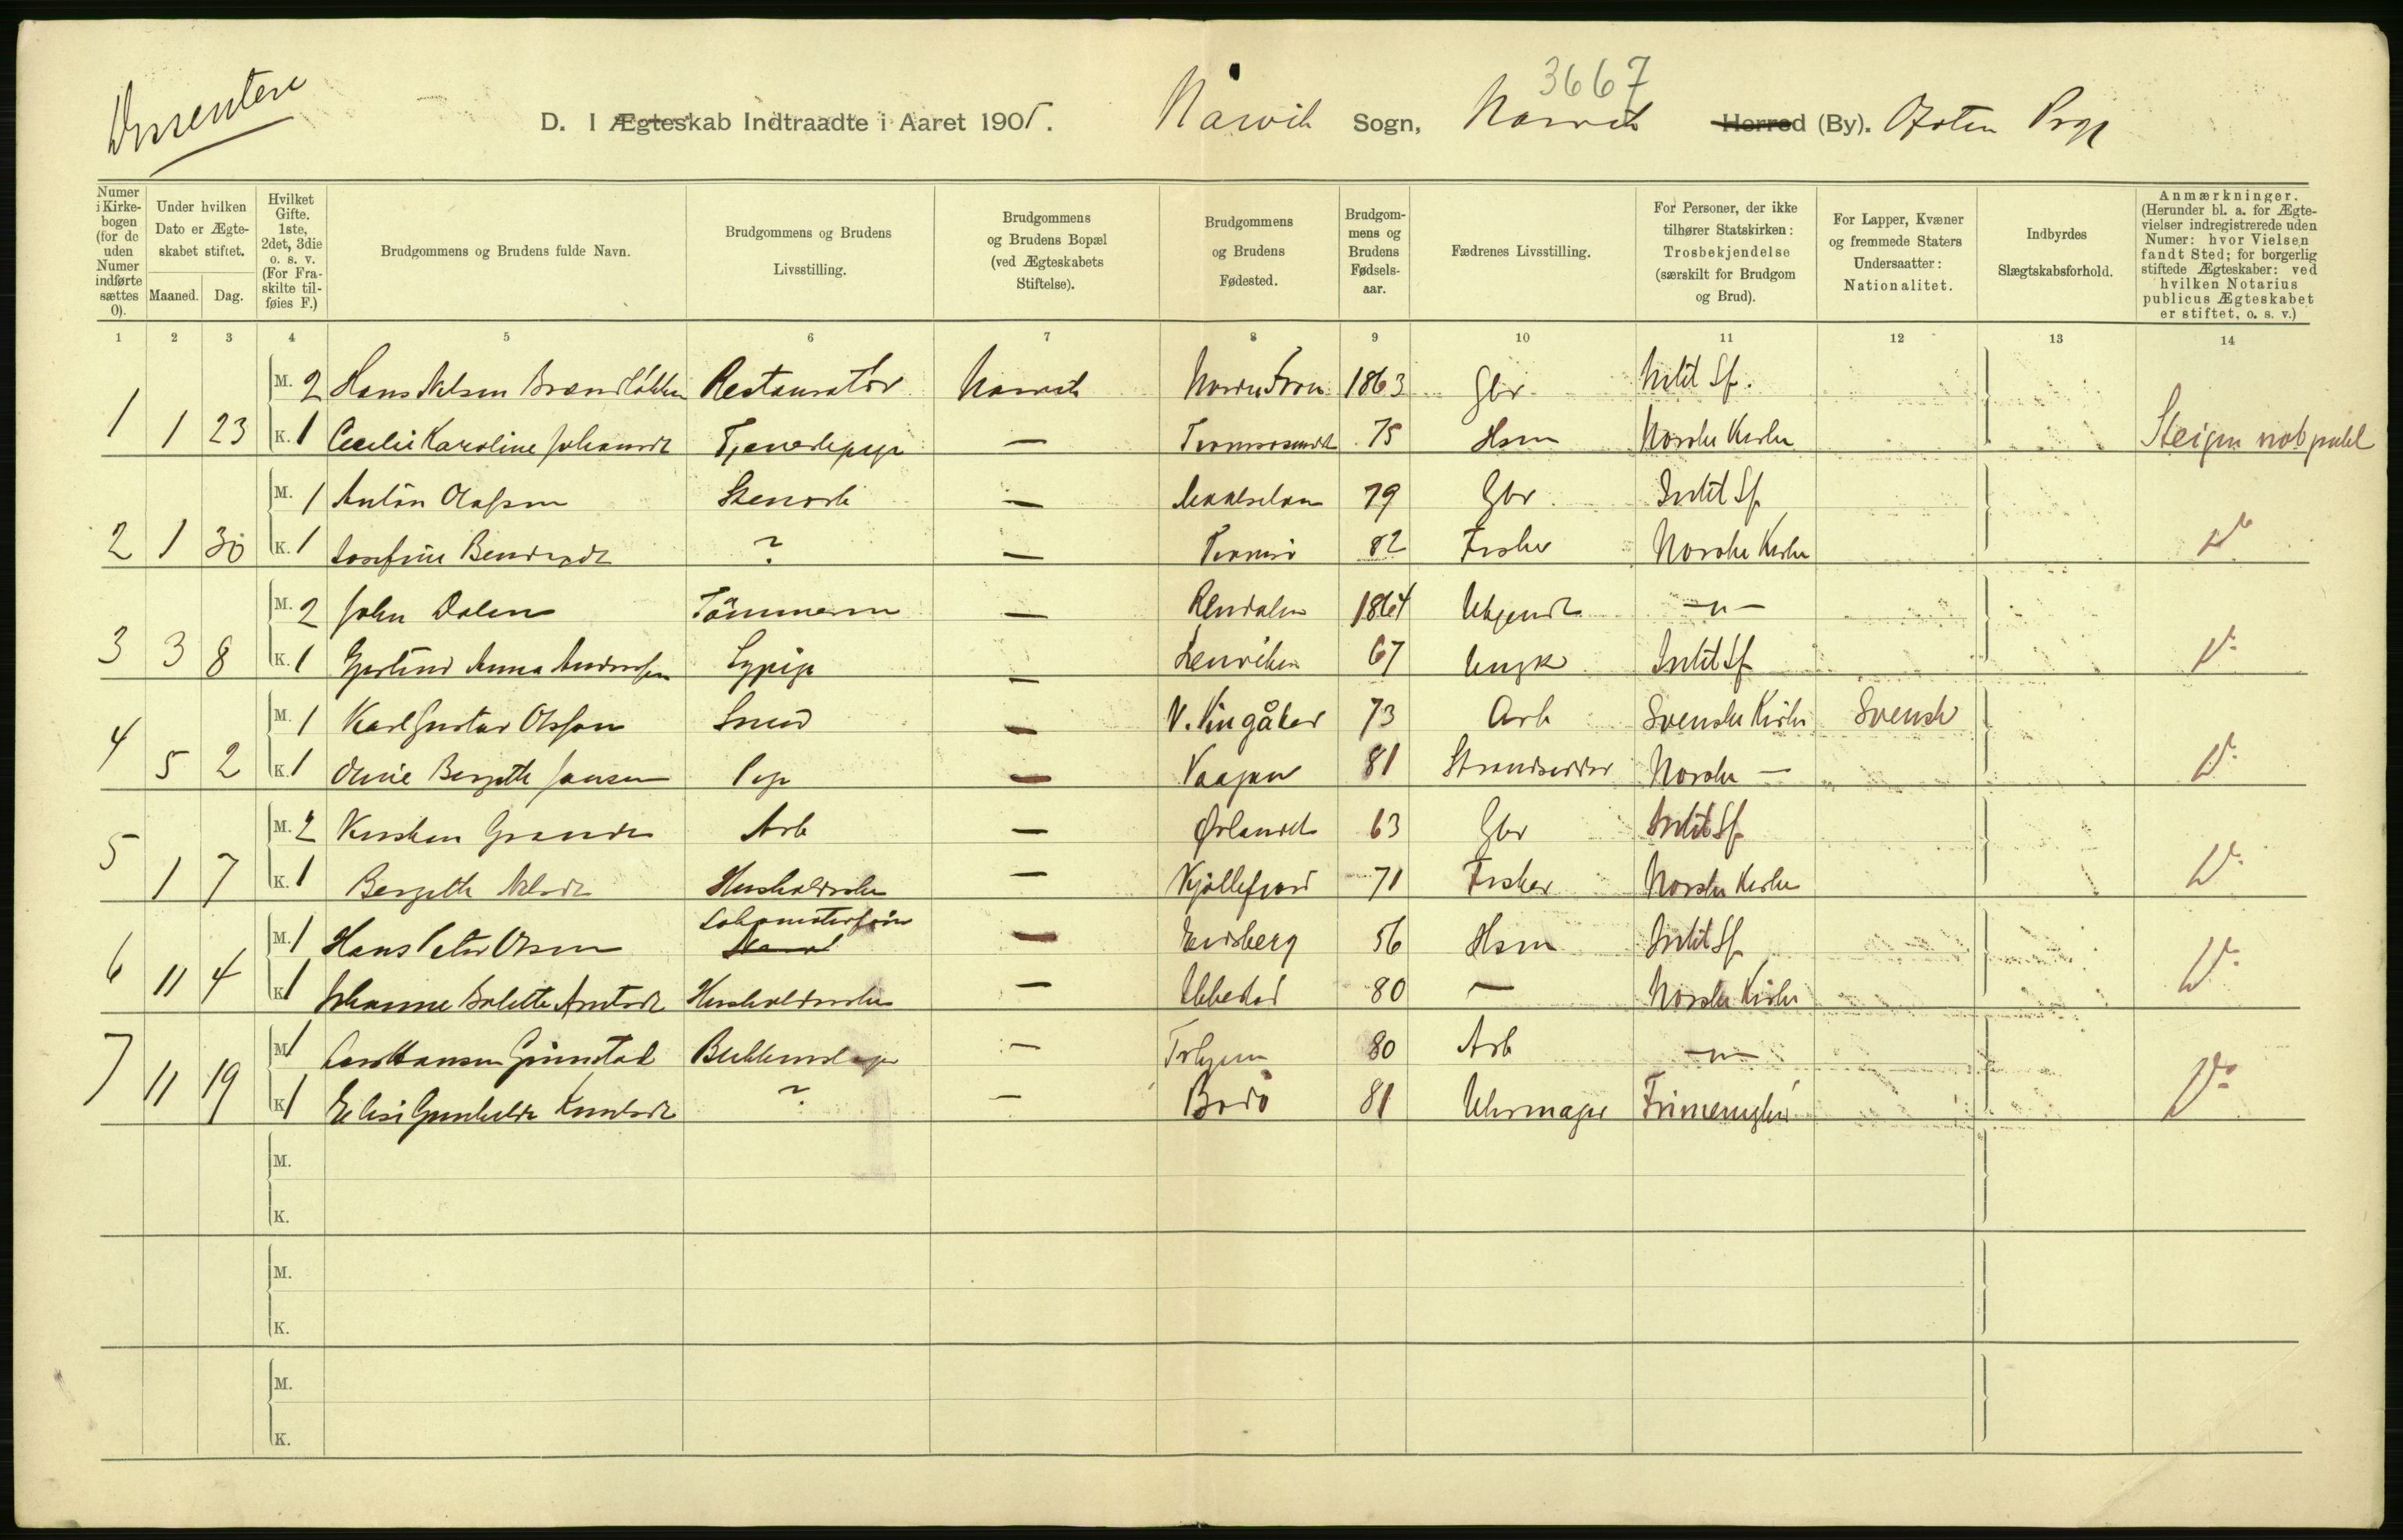 Dissentere
3667
D. I Ægteskab Indtraadte i Aaret 1905. Narvik Sogn, Narvik Herred (By). Ofoten Prgj
Numer i Kirkebogen (for de uden Numer indførte sættes 0).
Under hvilken Dato er Ægteskabet stiftet.
Maaned. Dag.
Hvilket Gifte. 1ste, 2det, 3die o. s. v. (For Fraskilte tilføies F.)
Brudgommens og Brudens fulde Navn.
Brudgommens og Brudens Livsstilling.
Brudgommens og Brudens Bopæl (ved Ægteskabets Stiftelse).
Brudgommens og Brudens Fødested.
Brudgommens og Brudens Fødselsaar.
Fædrenes Livsstilling.
For Personer, der ikke tilhører Statskirken: Trosbekjendelse (særskilt for Brudgom og Brud).
For Lapper, Kvæner og fremmede Staters Undersaatter: Nationalitet.
Indbyrdes Slægtskabsforhold.
Anmærkninger. (Herunder bl. a. for Ægtevielser indregistrerede uden Numer: hvor Vielsen fandt Sted; for borgerlig stiftede Ægteskaber: ved hvilken Notarius publicus Ægteskabet er stiftet, o. s. v.)
1 2 3 4 5 6 7 8 9 10 11 12 13 14
M. 2 Hans Nilsen Restauratør Narvik 1863 Gbr. Intet Sf.
1 1 23 K. 1 Cecilie Karoline Johansdt Tjenestepige — Tromsøsundet 75 Hsm Norske Kirke Steigen not publ
M. 1 Anton Olafsen — Maalselven 79 Gbr. Intet Sf
2 1 30 K. 1 Josefine ? — Tromsø 82 Fisker Norske Kirke Do
M. 2 John Dalen Tömmerm — Rendalen 1864 Ukjendt —"—
3 3 8 K. 1 Gjertine Anna Andersen Sypige — Lenviken 67 Intet Sf Do
M. 1 Karl Gustav Olsson Smed — V. Vingåker 73 Arb Svenske Kirke Svensk
4 5 2 K. 1 Oline Bergette Jansen Pige — Vaagan 81 Strandsidder Norske — Do
M. 2 Grande Arb — Ørlandet 63 Gbr Intet Sf
5 1 7 K. 1 Bergette Nilsdt Husholderske — Kjöllefjord 71 Fisker Norske Kirke Do
M. 1 Hans Peter Olsen Lokomotivförer — Eidsberg 56 Hsm Intet Sf
6 11 4 K. 1 Johanne Bolette Arntsdt Husholderske — Ibbestad 80 — Norske Kirke Do
M. 1 Hansen Grimstad — 80 Arb —"—
7 11 19 K. 1 Elise Gunhilde Knutsdt ? — Bodö 81 Uhrmager Frimenighd Do
M.
K.
M.
K.
M.
K.